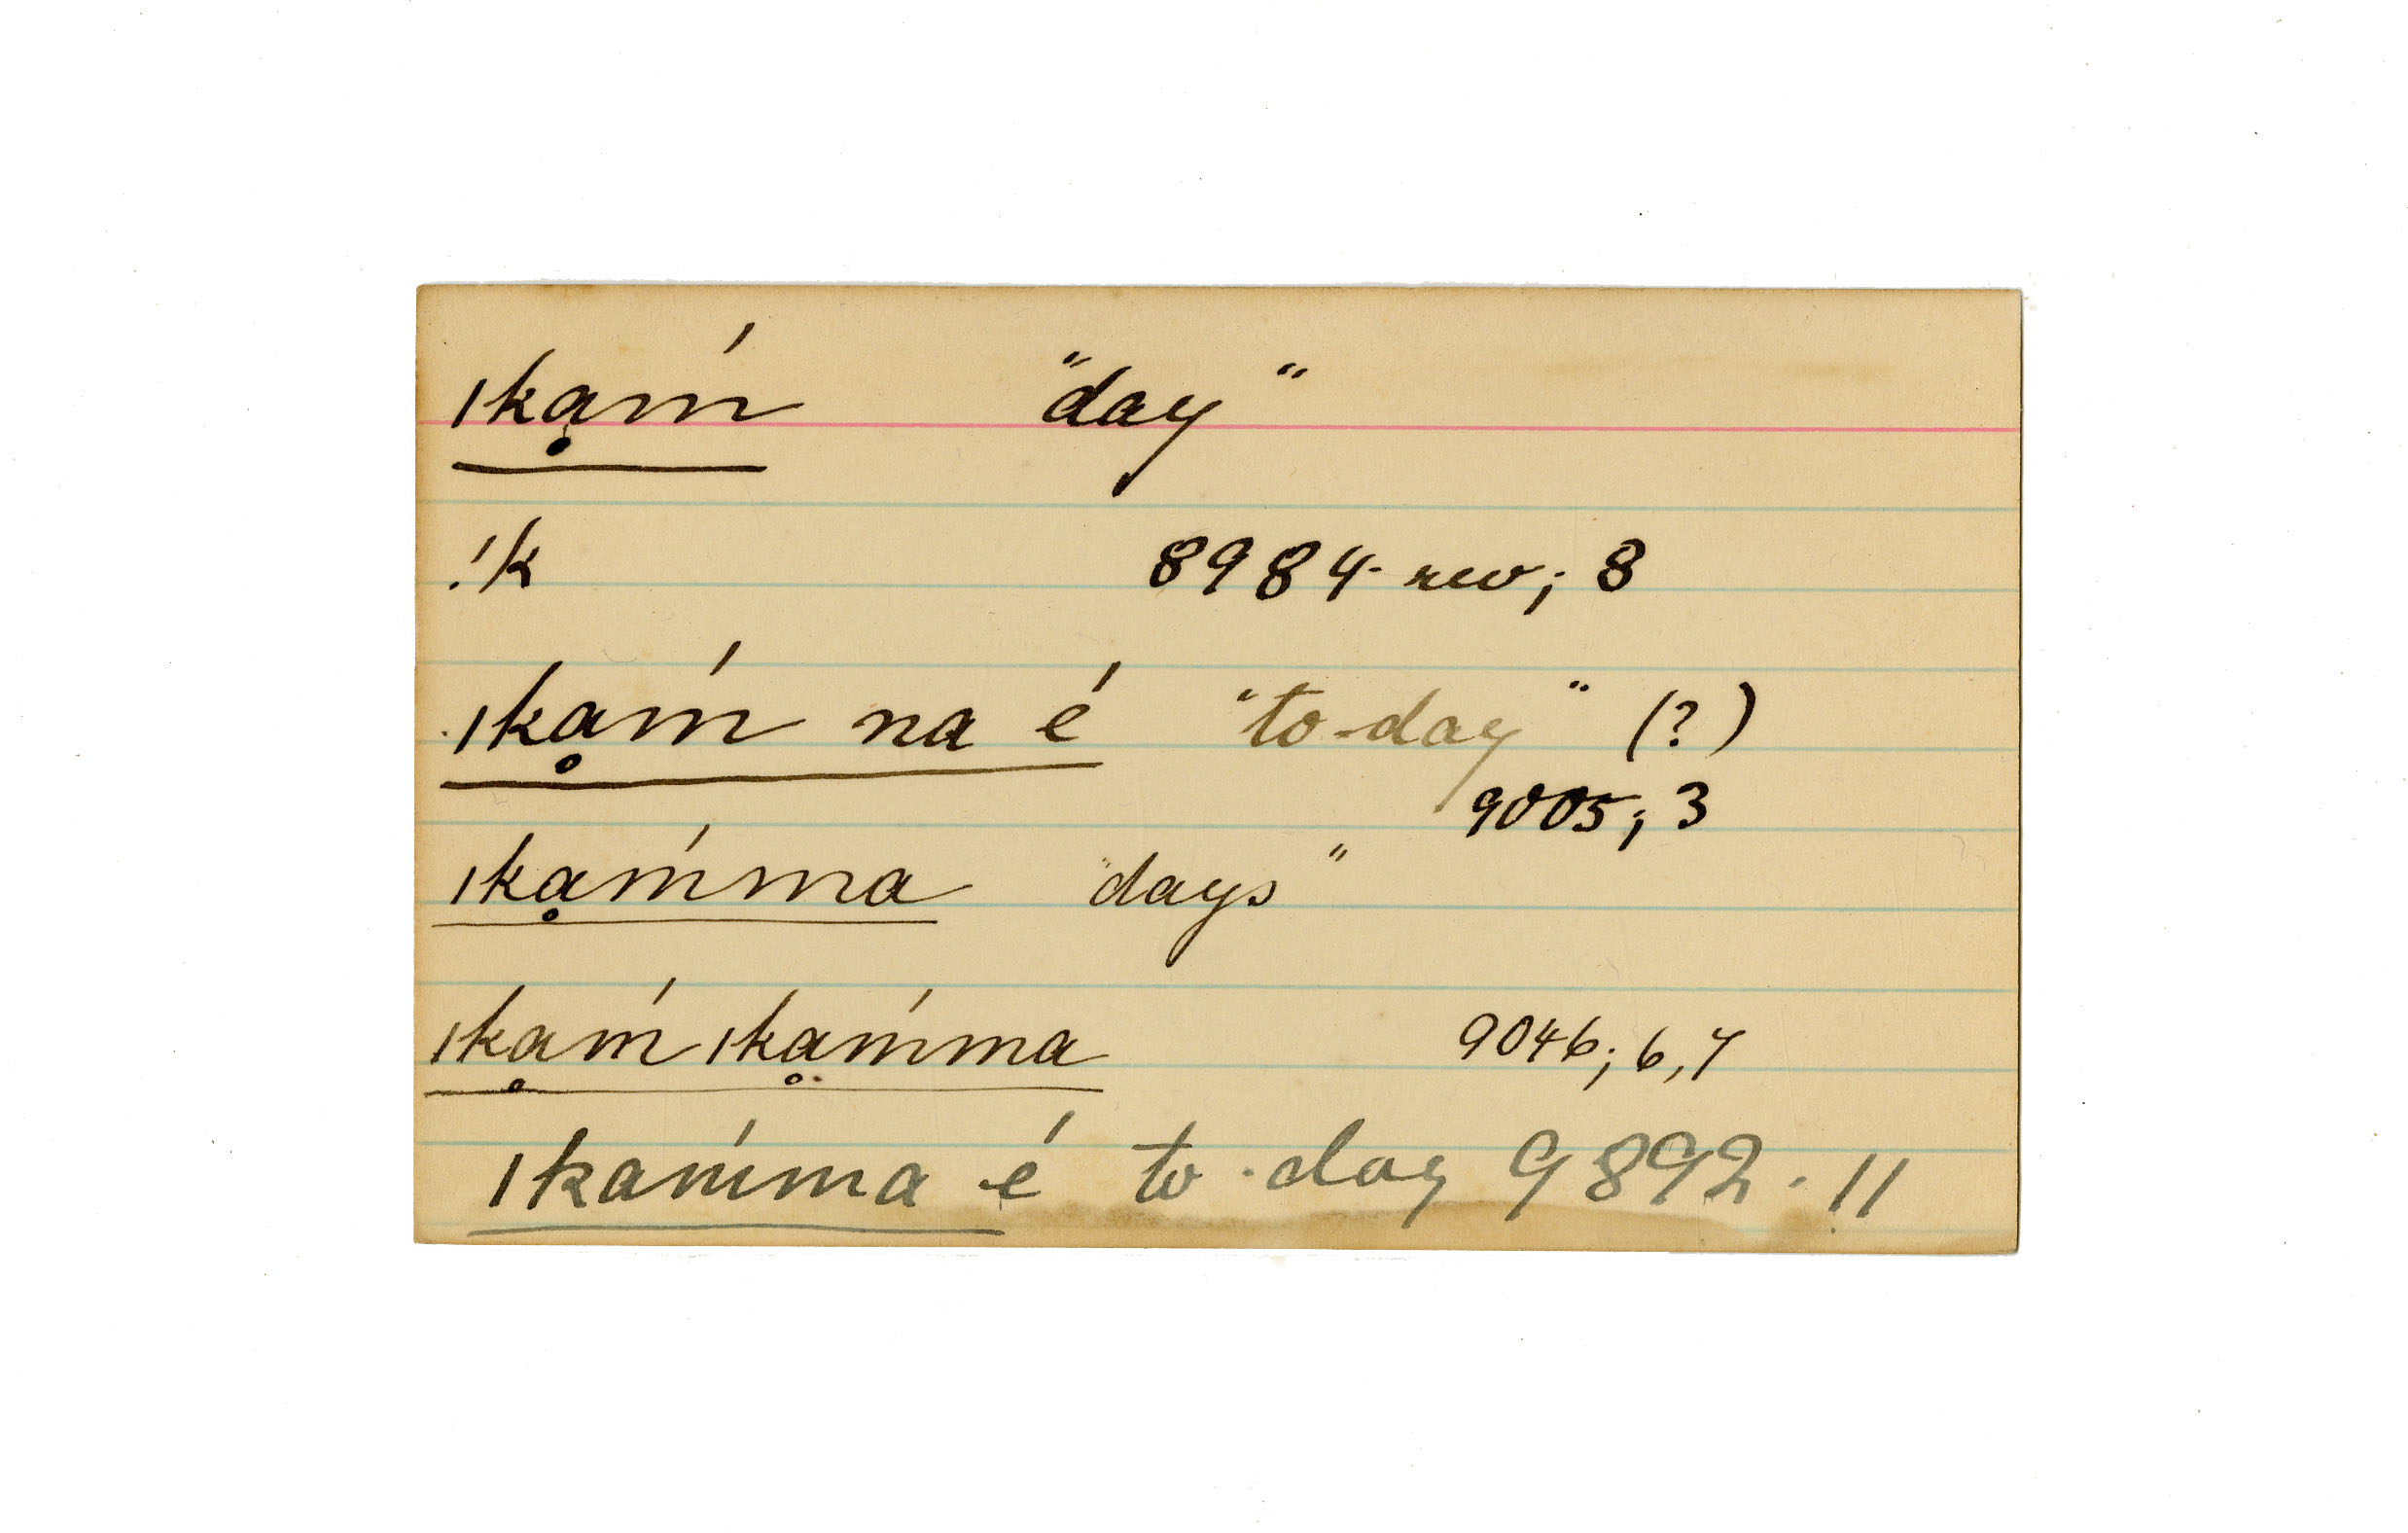 ǀkḁḿ "day"
!k 8984. rev; 8
ǀkḁḿ na é "to-day" (?)
9005; 3
ǀkḁḿma "days"
ǀkḁḿ ǀkḁḿma 9046; 6, 7
ǀkaḿma -é to-day 9892. 11